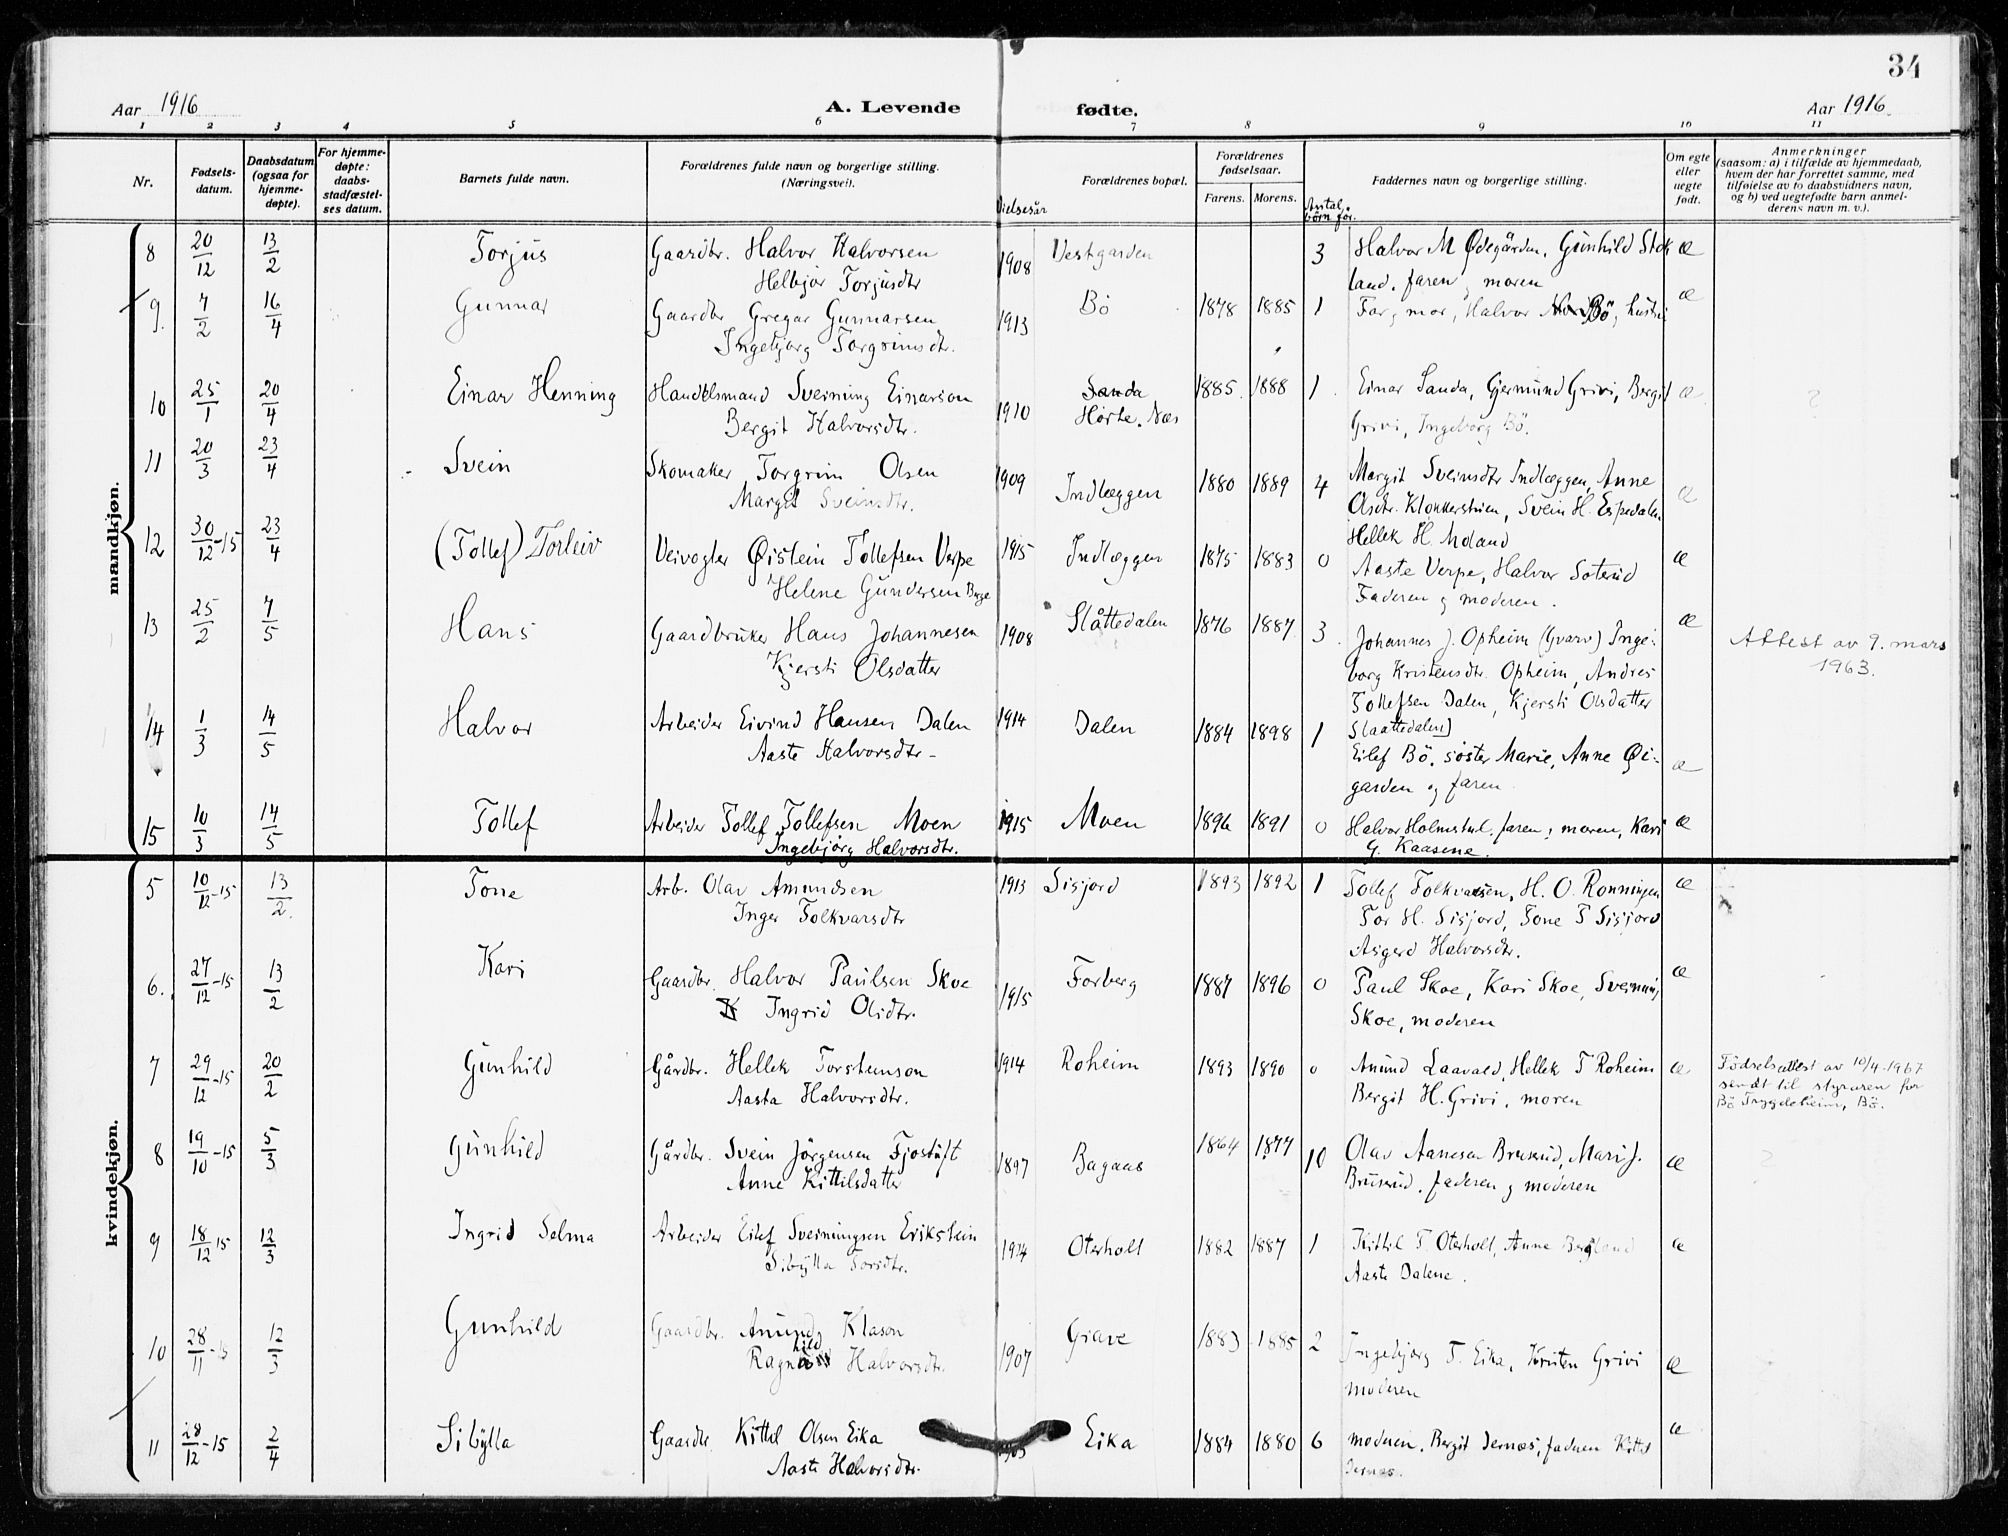 34
Aar 1916 A. Levende fødte. Aar 1916.
1 2 3 4 5 6 7 8 9 10 11
Nr. Fødsels-datum. Daabsdatum (ogsaa for hjemme-døpte). For hjemme-døpte: daabs-stadfæstel-ses datum. Barnets fulde navn. Forældrenes fulde navn og borgerlige stilling. (Næringsvei). Vielsesår Forældrenes bopæl. Forældrenes fødselsaar. Farens. Morens. Antal børn før. Faddernes navn og borgerlige stilling. Om egte eller uegte født. Anmerkninger (saasom: a) i tilfælde av hjemmedaab, hvem der har forrettet samme, med tilføielse av to daabsvidners navn, og b) ved uegtefødte barn anmel-derens navn m. v.).
mandkjøn.
8 20/12 13/2 Torjus Gaardbr. Halvor Halvorsen 1908 Vestgarden 3 Halvor M Ødegården, Gunhild Stok Æ
Helbjør Torjusdtr land. faren og moren
9. 7/2 16/4 Gunnar Gaardbr Gregar Gunnarsen 1913 Bö 1878 1885 1 Far og mor, Halvor Bö, hustru Æ
Ingebjørg Torgrimsdtr.
10 25/1 20/4 Einar Henning Handelsmand Sveinung Einarson 1910 Sanda 1885 1888 1 Einar Sanda, Gjermund Grivi, Bergit Æ
Bergit Halvorsdtr. Hørte. Næs Grivi, Ingeborg Bö.
11 20/3 23/4 Svein Skomaker Torgrim Olsen 1909 Indlæggen 1880 1889 4 Margit Sveinsdtr Indlæggen, Anne Æ
Margit Sveinsdtr. Olsdtr. Klokkerstuen, Svein H. Espedalen
Hellek H. Moland
12 30/12-15 23/4 (Tollef) Torleiv Veivogter Øistein Tollefsen Verpe 1915 Indlæggen 1875 1883 0 Aaste Verpe, Halvor Soterud Æ
Helene Gundersen Berge Faderen og moderen.
13 25/2 7/5 Hans Gaardbruker Hans Johannesen 1908 Slåttedalen 1876 1887 3 Johannes J. Opheim (Gvarv) Inge- Æ Attest av 9. mars
Kjersti Olsdatter borg Kristensdtr. Opheim, Andres 1963.
Tollefsen Dalen, Kjersti Olsdatter
Slaattedalen
14 1/3 14/5 Halvor Arbeider Eivind Hansen Dalen 1914 Dalen 1884 1898 1 Eilef Bö, søster Marie, Anne Øi- Æ
Aaste Halvorsdtr. garden og faren
15 10/3 14/5 Tollef Arbeider Tollef Tollefsen Moen 1915 Moen 1896 1891 0 Halvor Holmstul. faren, moren, Kari Æ
Ingebjørg Halvorsdtr. G. Kaasene.
kvindekjøn.
5 10/12-15 13/2. Tone Arb. Olav Amundsen 1913 Sisjord 1893 1892 1 Tollef Folkvarsen, H. O. Rønningen Æ
Inger Folkvarsdtr Tor H. Sisjord, Tone T Sisjord
Asgerd Halvorsdtr.
6. 27/12-15 13/2 Kari Gaardbr. Halvor Paulsen Skoe 1915 Forberg 1887 1896 0 Paul Skoe, Kari Skoe, Sveinung Æ
Ingrid Olsdtr. Skoe, moderen
7 29/12-15 20/2 Gunhild Gårdbr. Hellek Torsteinson 1914 Roheim 1893 1890 0 Amund Laavald, Hellek T Roheim Æ Fødselsattest av 10/4-1967
Aasta Halvorsdtr. Bergit H. Grivi, moren sendt til styraren for
Bö Trygdeheim, Bö.
8 19/10-15 5/3 Gunhild Gårdbr. Svein Jörgensen Fjostuft 1897 Bagaas 1864 1877 10 Olav Aanesen Bruserud, Mari J. Æ
Anne Kittilsdatter Bruserud. faderen og moderen
9 18/12 15 12/3 Ingrid Selma Arbeider Eilef Sveinungsen Erikstein 1914 Oterholt 1882 1887 1 Kittil T Oterholt, Anne Bergland Æ
Sibylla Torsdtr. Aaste Dalene.
10 28/11-15 12/3 Gunhild Gaardbr. Amund Klason 1907 Grave 1883 1885 2 Ingebjørg T. Eika, Kristen Grivi Æ
Ragnhild Halvorsdtr. moderen
11 28/12-15 2/4 Sibylla Gaardbr. Kittil Olsen Eika 1905 Eika 1884 1880 6 moderen, Bergit Jernæs, faderen Kittil Æ
Aaste Halvorsdtr. Jernæs.